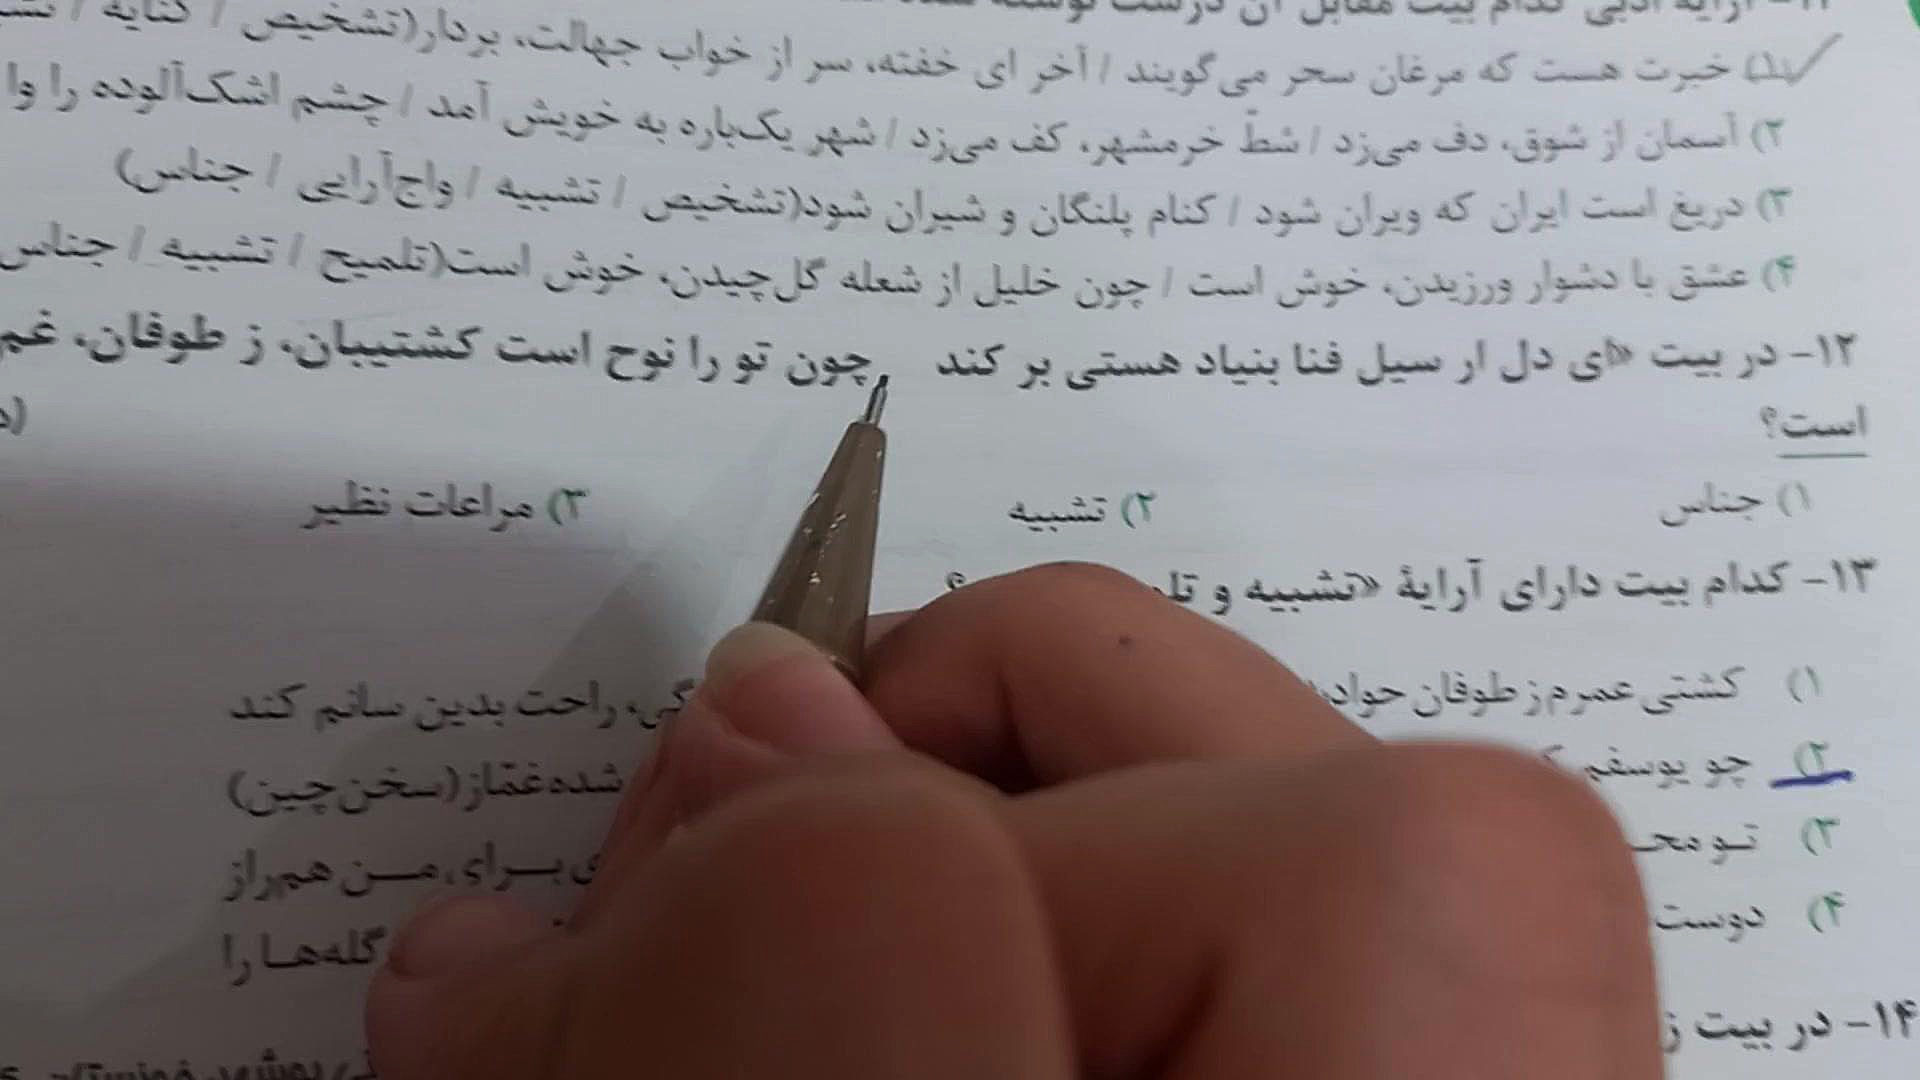 ۱۱- آرایه ادبی کدام بیت مقابل آن درست نوشته شده
۱) خبرت هست که مرغان سحر می‌گویند / آخر ای خفته، سر از خواب جهالت، بردار(تشخیص / کنایه /
۲) آسمان از شوق، دف می‌زد / شطّ خرمشهر، کف می‌زد / شهر یک‌باره به خویش آمد / چشم اشک‌آلوده را وا
۳) دریغ است ایران که ویران شود / کنام پلنگان و شیران شود(تشخیص / تشبیه / واج‌آرایی / جناس)
۴) عشق با دشوار ورزیدن، خوش است / چون خلیل از شعله گل‌چیدن، خوش است(تلمیح / تشبیه / جناس
۱۲- در بیت «ای دل ار سیل فنا بنیاد هستی بر کند چون تو را نوح است کشتیبان، ز طوفان، غم
است؟
۱) جناس ۲) تشبیه ۳) مراعات نظیر
۱۳- کدام بیت دارای آرایهٔ «تشبیه و
۱) کشتی عمرم ز طوفان راحت بدین سانم کند
۲) چو یوسفم شده غمّاز(سخن‌چین)
۳) تو برای، من هم‌راز
۴) دوست گله‌ها را
۱۴- در بیت